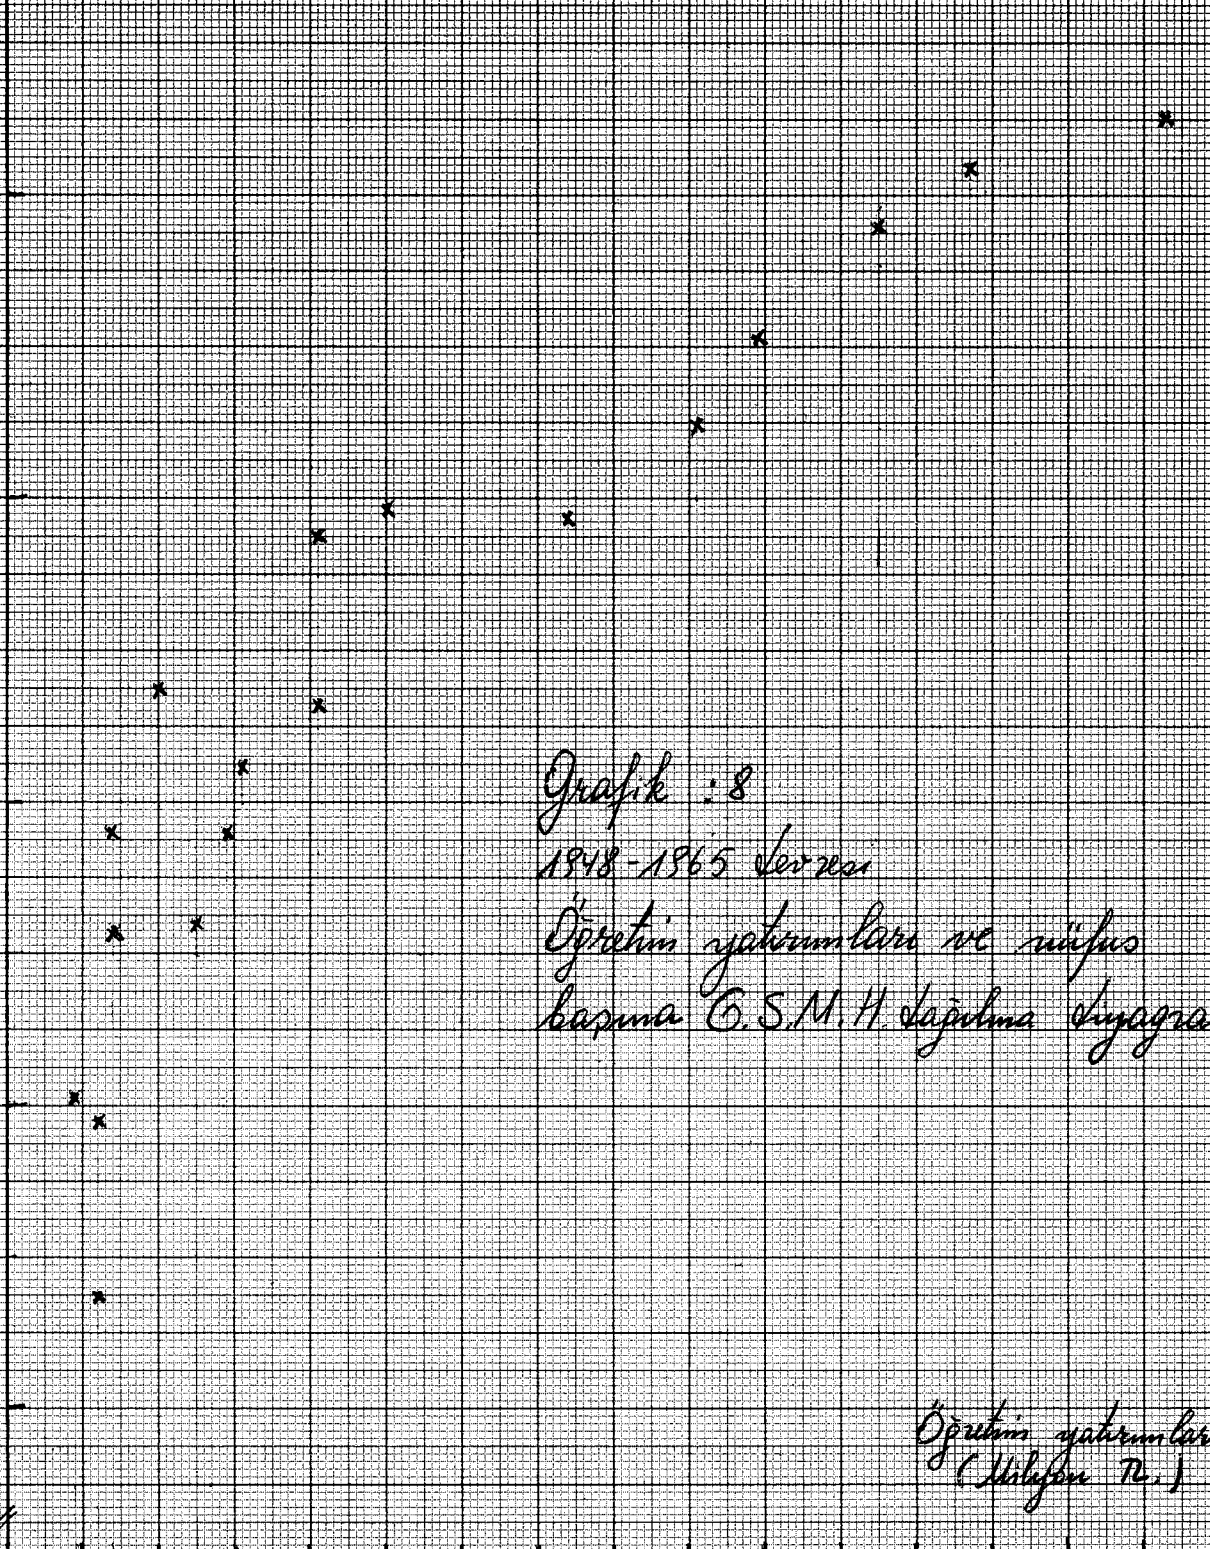 Grafik : 8
1948-1965 devresi
Öğretim yatırımları ve nüfus
başına G.S.M.H. dağılma diyagra
Öğretim yatırımlar
(Milyon TL.)